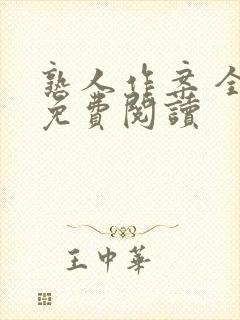 熟人作案全
免費閱讀
王中華